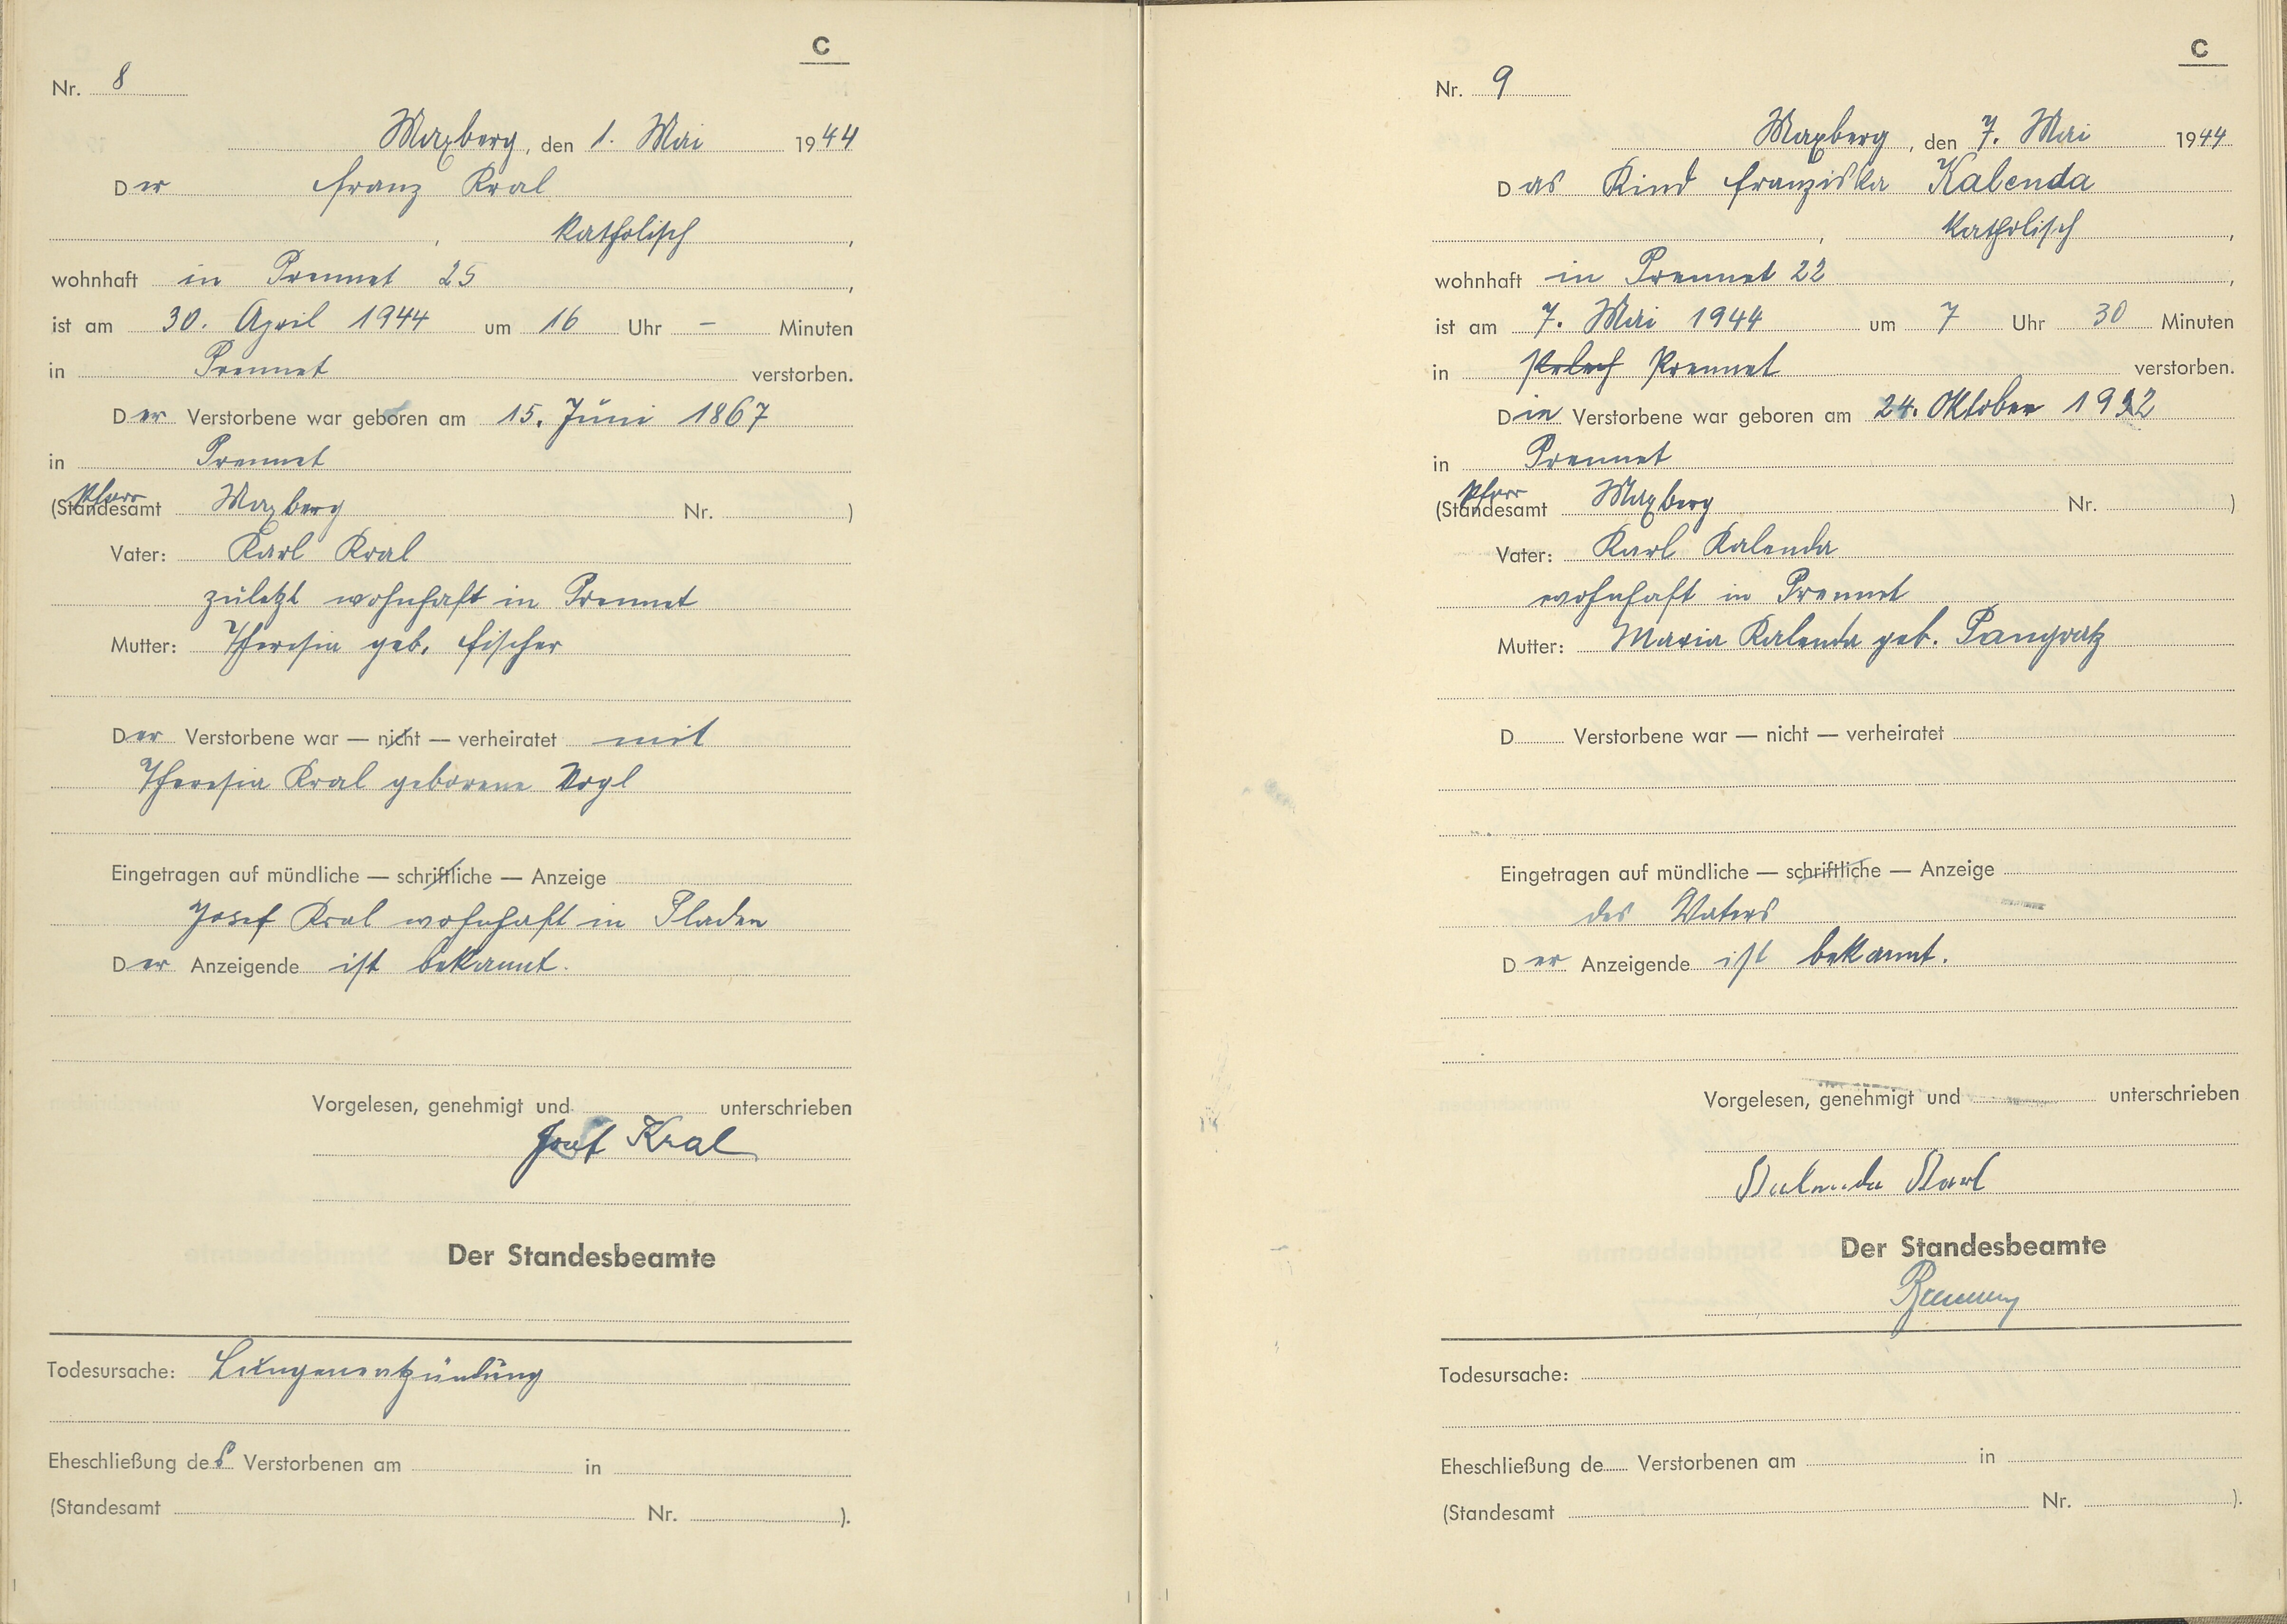 C
Nr. 8
Maxberg, den 1. Mai 1944
Der Franz Kral
, katholisch,
wohnhaft in Prennet 25,
ist am 30. April 1944 um 16 Uhr – Minuten
in Prennet verstorben.
Der Verstorbene war geboren am 15. Juni 1867
in Prennet
Pfarr
(Standesamt Maxberg Nr. )
Vater: Karl Kral
zuletzt wohnhaft in Prennet
Mutter: Theresia geb. Fischer
Der Verstorbene war — nicht — verheiratet mit
Theresia Kral geborene Vogl
Eingetragen auf mündliche — schriftliche — Anzeige
Josef Kral wohnhaft in Pladen
Der Anzeigende ist bekannt.
Vorgelesen, genehmigt und unterschrieben
Josef Kral
Der Standesbeamte
Todesursache: Lungenentzündung
Eheschließung des Verstorbenen am in
(Standesamt Nr. ).
C
Nr. 9
Maxberg, den 7. Mai 1944
Das Kind Franziska Kalenda
, katholisch,
wohnhaft in Prennet 22,
ist am 7. Mai 1944 um 7 Uhr 30 Minuten
in Prennet verstorben.
Die Verstorbene war geboren am 24. Oktober
in Prennet
Pfarr
(Standesamt Maxberg Nr. )
Vater: Karl Kalenda
wohnhaft in Prennet
Mutter: Maria Kalenda geb. Pangratz
D Verstorbene war — nicht — verheiratet
Eingetragen auf mündliche — schriftliche — Anzeige
des Vaters
Der Anzeigende ist bekannt.
Vorgelesen, genehmigt und unterschrieben
Kalenda Karl
Der Standesbeamte
Todesursache:
Eheschließung de Verstorbenen am in
(Standesamt Nr. ).